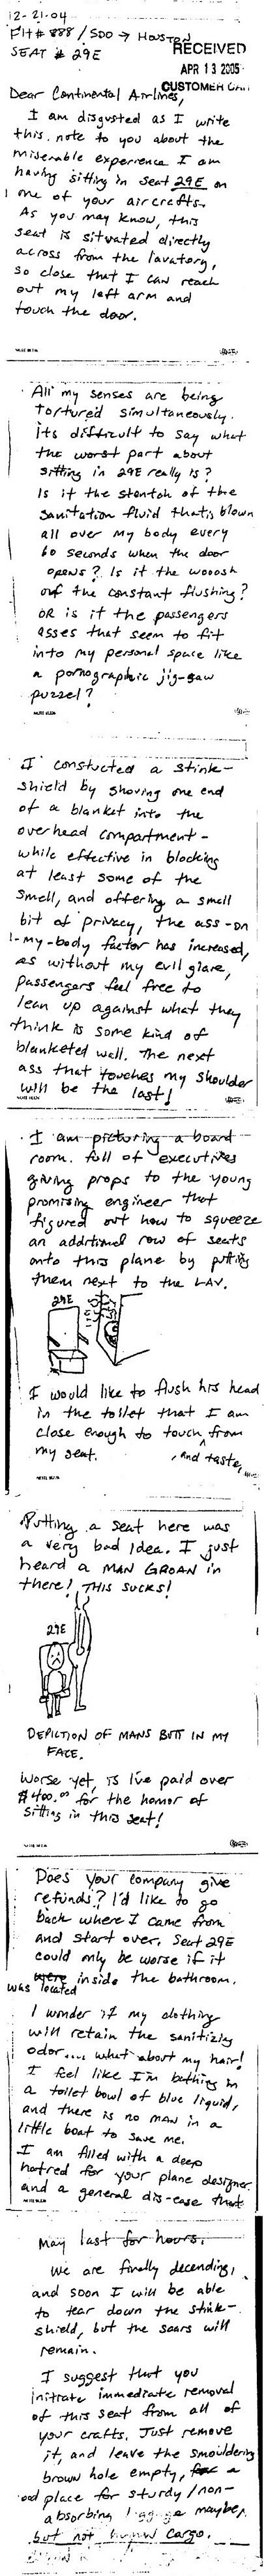 12-21-04
Flt# 888 / SDO → HOUSTON
SEAT # 29E
RECEIVED
APR 13 2005
CUSTOMER CARE
Dear Continental Airlines,
I am disgusted as I write
this note to you about the
miserable experience I am
having sitting in seat 29E on
one of your aircrafts.
As you may know, this
seat is situated directly
across from the lavatory,
so close that I can reach
out my left arm and
touch the door.
All my senses are being
tortured simultaneously.
Its difficult to say what
the worst part about
sitting in 29E really is?
Is it the stench of the
sanitation fluid that is blown
all over my body every
60 seconds when the door
opens? Is it the wooosh
of the constant flushing?
OR is it the passengers
asses that seem to fit
into my personal space like
a pornographic jig-saw
puzzel?
I constucted a stink-
shield by shoving one end
of a blanket into the
overhead compartment -
while effective in blocking
at least some of the
smell, and offering a small
bit of privacy, the ass-on
-my-body factor has increased,
as without my evil glare,
passengers feel free to
lean up against what they
think is some kind of
blanketed wall. The next
ass that touches my shoulder
will be the last!
I am picturing a board
room, full of executives
giving props to the young
promising engineer that
figured out how to squeeze
an additional row of seats
onto this plane by putting
them next to the LAV.
29E
I would like to flush his head
in the toilet that I am
close enough to touch, from
my seat.
, and taste,
Putting a seat here was
a very bad idea. I just
heard a MAN GROAN in
there! THIS SUCKS!
29E
DEPICTION OF MANS BUTT IN MY
FACE.
Worse yet, is I've paid over
$400.00 for the honor of
sitting in this seat!
Does your company give
refunds? I'd like to go
back where I came from
and start over. Seat 29E
could only be worse if it
were inside the bathroom.
was located
I wonder if my clothing
will retain the sanitizing
odor.... what about my hair!
I feel like I'm bathing in
a toilet bowl of blue liquid,
and there is no man in a
little boat to save me.
I am filled with a deep
hatred for your plane designer
and a general dis-ease that
may last for hours.
We are finally decending,
and soon I will be able
to tear down the stink-
shield, but the scars will
remain.
I suggest that you
initiate immediate removal
of this seat from all of
your crafts. Just remove
it, and leave the smouldering
brown hole empty, a
place for sturdy/non-
absorbing luggage maybe,
but not human cargo.